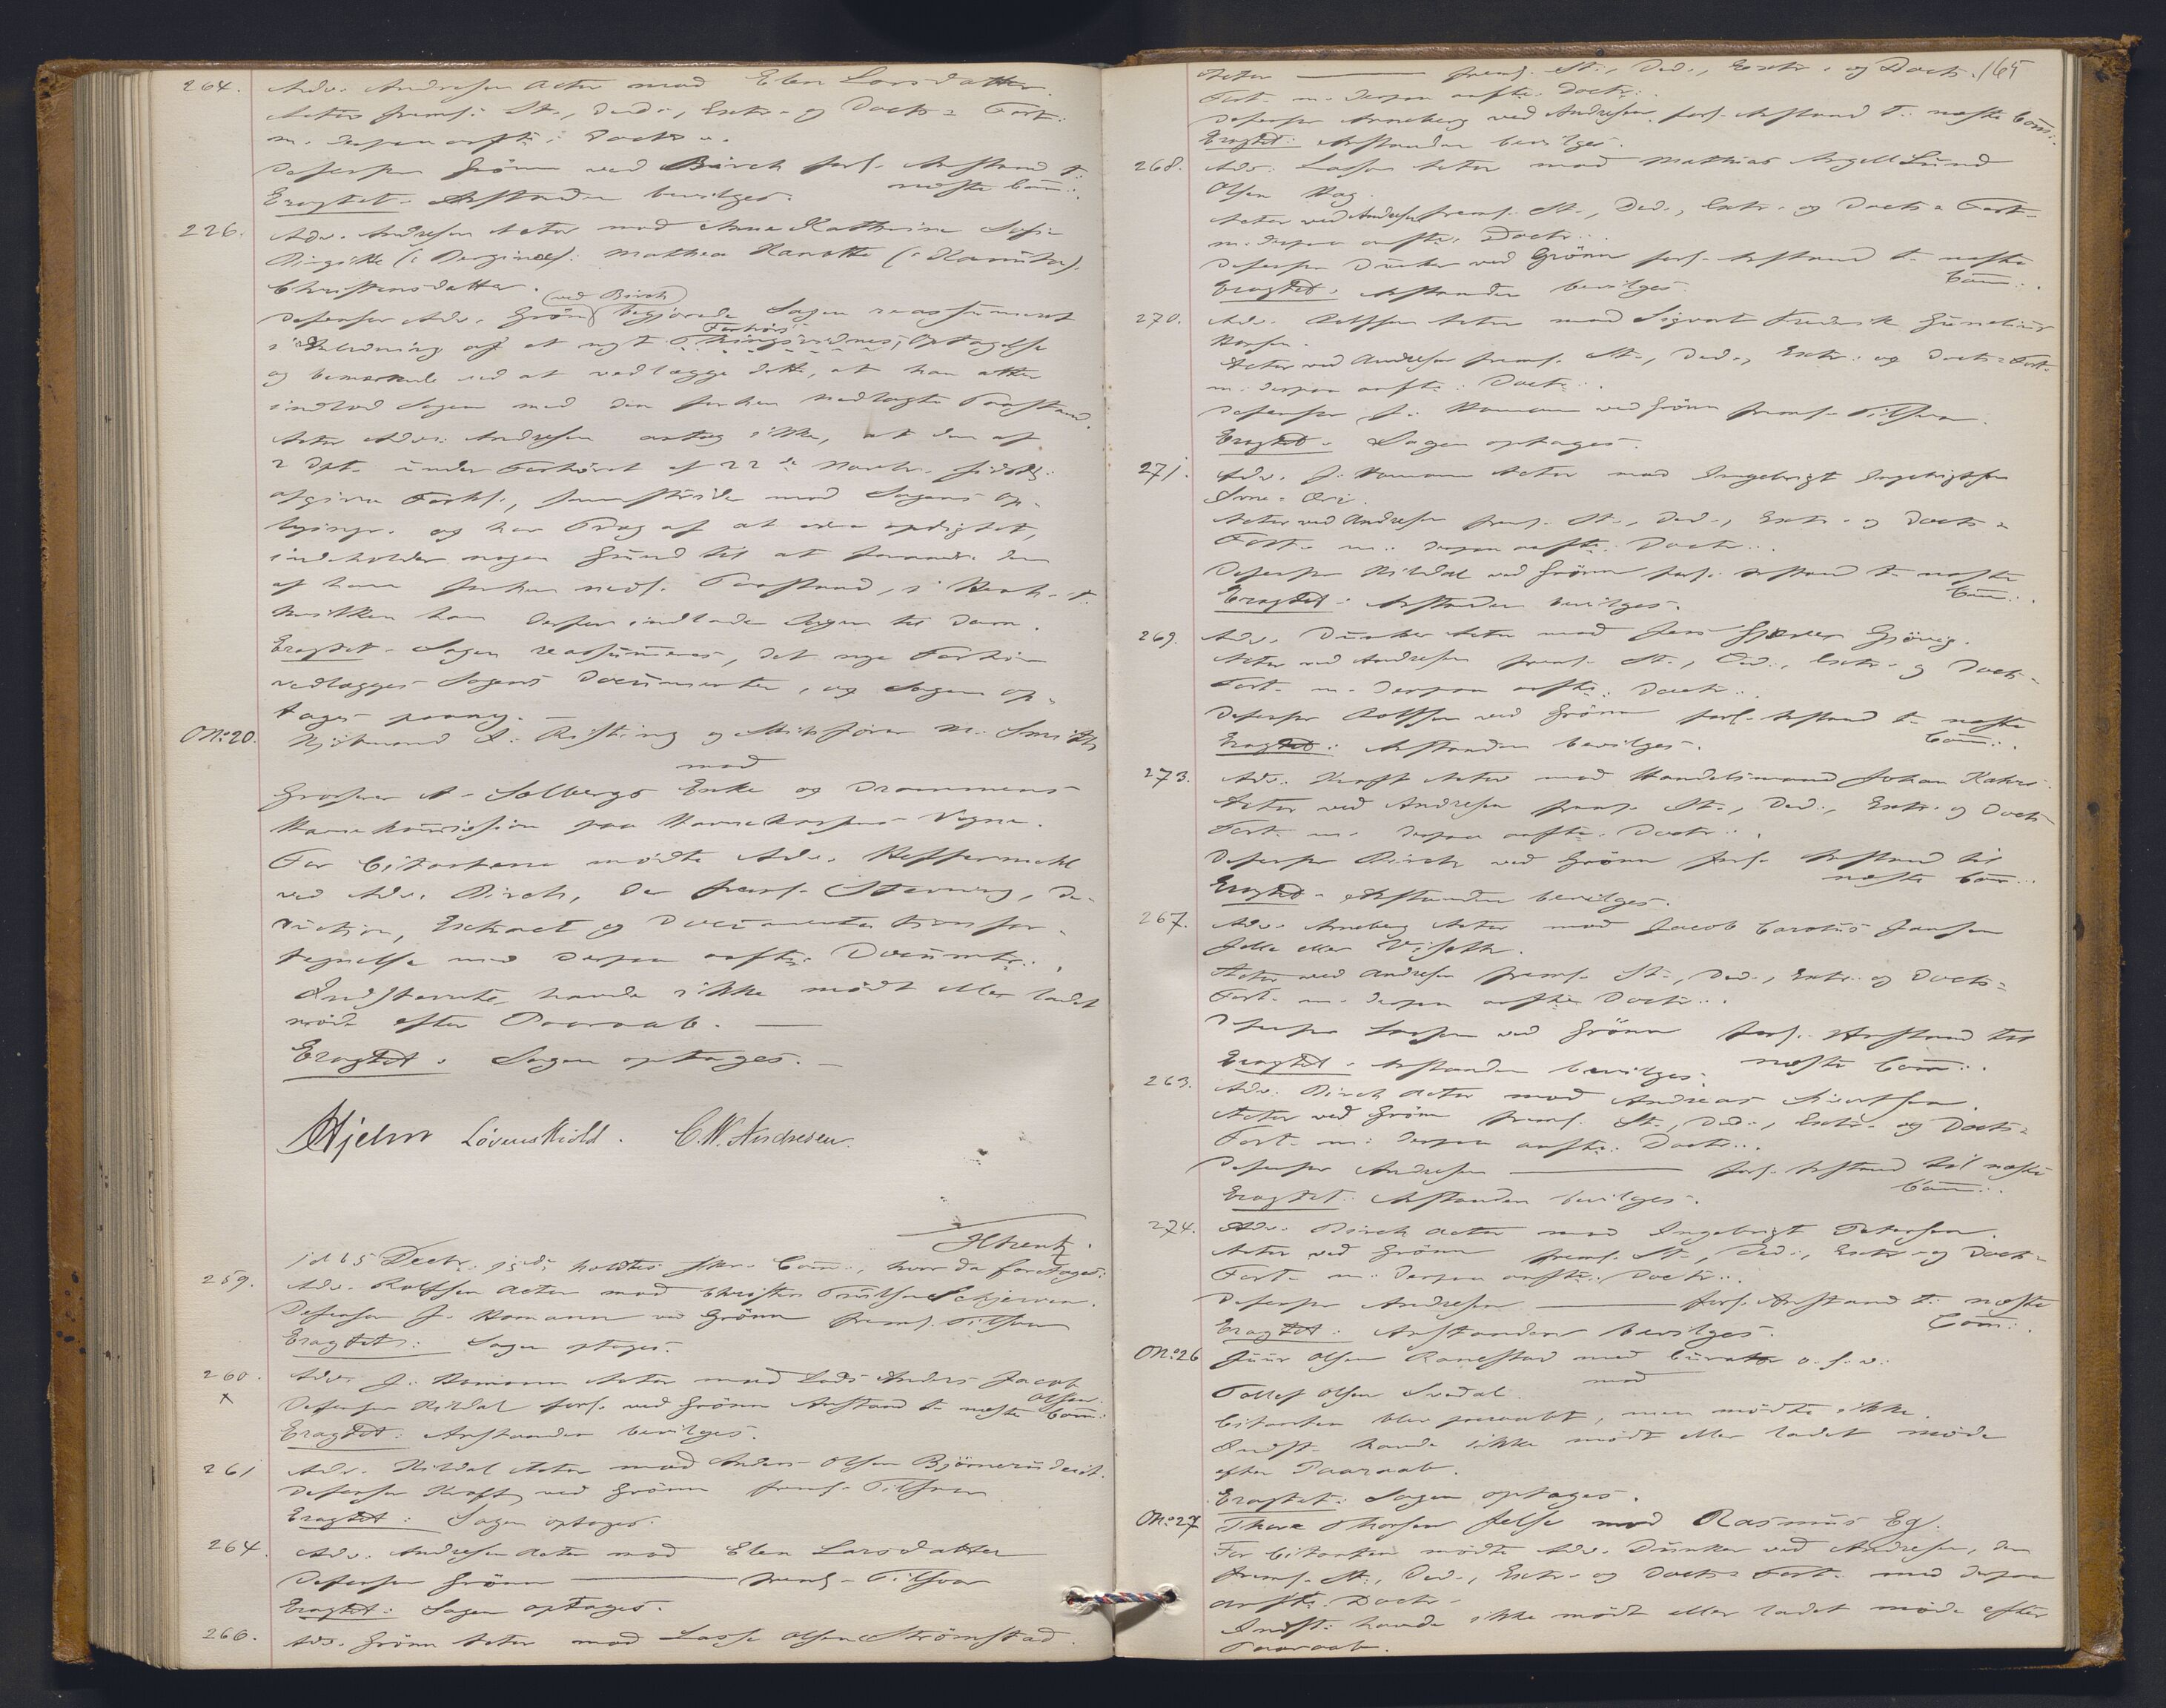 264. Adv. Andresen Actor mod Elen Larsdatter.
Actor freml. St., Ded., Extr. og Docts= Fort.
m. derpaa anførte Docts.
Defensor Grönn ved Birch forl. Anstand t.
næste Com:.
Eragtet. Anstanden bevilges.
226. Adv. Andresen Actor mod Anne Kathrine Sofie
Birgitte (: Bergine) Mathea Hanotte (: )
Christensdatter.
Defensor Adv. Grön (ved Birch) begjærede Sagen reassumeret
i Anledning af et nyt Forhörs Thingsvidnes, Optagelse
og bemærkede ved at vedlægge dette, at han atter
indlod Sagen med den forhen nedlagte Paastand.
Actor Adv. Andresen antog ikke, at den af
2 Dpt. under Forhöret af 22de Novbr. sidstl.
afgivne Forkl., sammenholdt med Sagens Op=
lysngr. og har Præg af at være opdigtet,
indeholder nogen Grund til at forandre den
af ham forhen nedl. Paastand, i Henh. t.
hvilken han derfor indlader Sagen til Dom.
Eragtet. Sagen reassumeres, det nye Forhör
vedlægges Sagens Documenter, og Sagen op=
tages paany.
No. 20. Kjöbmand A. Risting og M. Smith
mod
Grosserer A. Solbergs Enke og Drammens
Havnekommission paa Havnekassens Vegne.
For Citanterne mödte Adv. Heffermehl
ved Adv. Birch, der freml. Stevning, De=
duction, Extract og Documentationsfor=
tegnelse med derpaa anförte Documtr.
Indstevnte havde ikke mödt eller ladet
möde efter Paaraab.
Eragtet. Sagen optages.
Hjelm Løvenskiold. C. W. Andresen.
H Krentz.
d 15 Decbr. holdtes Com., hvor da foretoges:
259. Adv. Rolfsen Actor mod Christen Schjerven.
Defensor J. Homann ved Grönn freml. Tilsvar
Eragtet: Sagen optages.
260. Adv. J. Homann Actor mod Lods Anders Jacob
Olsen.
x Defensor Kildal forl. ved Grönn Anstand t. næste Com:
Eragtet: Anstanden bevilges.
261 Adv. Kildal Actor mod Anders Olsen Björnerudeiet.
Defensor Krafft ved Grönn freml. Tilsvar
Eragtet: Sagen optages.
264. Adv. Andresen Actor mod Elen Larsdatter
Defensor Grönn freml. Tilsvar
Eragtet: Sagen optages.
266. Adv. Grönn Actor mod Lasse Olsen Strömstad.
165
Actor freml. St., Ded., Extr. og Docts.
Fort. m. derpaa anførte Doctr:.
Defensor Arneberg ved Andresen forl. Anstand t. næste Com:.
Eragtet: Anstanden bevilges.
268. Adv. Lasson Actor mod Mathias Angell Lund
Olsen Hag.
Actor ved Andresen freml. St., Ded., Extr. og Docts= Fort.
m. derpaa anførte Doctr:.
Defensor Dunker ved Grönn forl. Anstand t. næste
Com:.
Eragtet: Anstanden bevilges.
270. Adv. Rolfsen Actor mod Sigvart Frederik Gunelius
Hansen.
Actor ved Andresen freml. St., Ded., Extr. og Docts= Fort.
m. derpaa anførte Doctr:.
Defensor J. Homann ved Grönn freml. Tilsvar.
Eragtet. Sagen optages.
271. Adv. J. Homann Actor mod Ingebrigt Ingebrigtsen
Actor ved Andresen freml. St., Ded., Extr. og Docts=
Fort. m. derpaa anførte Doctr:.
Defensor Kildal ved Grönn forl. Anstand t. næste
Com:.
Eragtet: Anstanden bevilges.
269. Adv. Dunker Actor mod Jens Gjövig.
Actor ved Andresen freml. St., Ded., Extr. og Docts=
Fort. m. derpaa anførte Doctr:.
Defensor Rolfsen ved Grönn forl. Anstand t. næste
Com:.
Eragtet: Anstanden bevilges.
273. Adv. Krafft Actor mod Handelsmand Johan Kahrs.
Actor ved Andresen freml. St., Ded., Extr. og Docts
Fort. m. derpaa anførte Doctr:.
Defensor Birch ved Grönn forl. Anstand til
næste Com:.
Eragtet. Anstanden bevilges.
267. Adv. Arneberg Actor mod Jacob Carolus Jansen
Jelle eller Viseth.
Actor ved Andresen freml. St., Ded., Extr. og Docts=
Fort. m. derpaa anførte Doctr:.
Defensor Lasson ved Grönn forl. Anstand til
næste Com:.
Eragtet. Anstanden bevilges.
263. Adv. Birch Actor mod Andreas Sivertsen.
Actor ved Grönn freml. St., Ded., Extr. og Docts=
Fort. m. derpaa anførte Doctr:.
Defensor Andresen forl. Anstand til næste
Com:.
Eragtet: Anstanden bevilges.
274. Adv. Birch Actor mod Ingebrigt Petersen.
Actor ved Grönn freml. St., Ded., Extr. og Docts=
Fort. m. derpaa anførte Doctr:.
Defensor Andresen forl. Anstand t. næste
Com:.
Eragtet: Anstanden bevilges.
No. 26 Olsen med Curator o. s. v.
mod
Tollef Olsen Svadal.
Citanten blev paaraabt, men mödte ikke.
Indst. havde ikke mödt eller ladet möde
efter Paaraab.
Eragtet: Sagen optages.
No. 27 Thore Thorsen Jelse mod Rasmus Eg.
For Citanten mödte Adv. Dunker ved Andresen, der
freml. St., Ded., Extr. og Docts= Fort. med derpaa
anförte Doctr.
Indst. havde ikke mödt eller ladet möde efter
Paaraab.